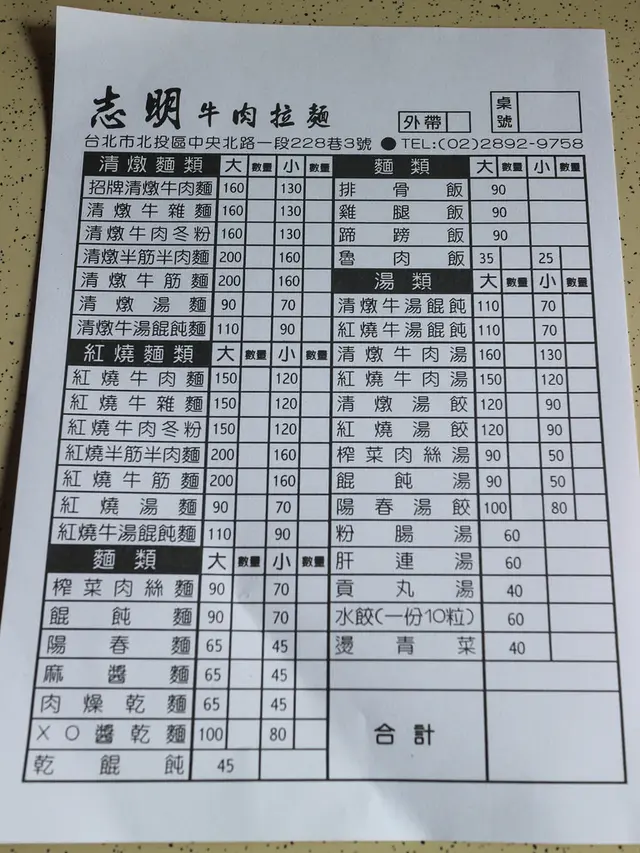 志明牛肉拉麵
外帶
桌號
台北市北投區中央北路一段228巷3號 ●TEL:(02)2892-9758
清燉麵類 大 數量 小 數量
招牌清燉牛肉麵 160 130
清燉牛雜麵 160 130
清燉牛肉冬粉 160 130
清燉半筋半肉麵 200 160
清燉牛筋麵 200 160
清燉湯麵 90 70
清燉牛湯餛飩麵 110 90
紅燒麵類 大 數量 小 數量
紅燒牛肉麵 150 120
紅燒牛雜麵 150 120
紅燒牛肉冬粉 150 120
紅燒半筋半肉麵 200 160
紅燒牛筋麵 200 160
紅燒湯麵 90 70
紅燒牛湯餛飩麵 110 90
麵類 大 數量 小 數量
榨菜肉絲麵 90 70
餛飩麵 90 70
陽春麵 65 45
麻醬麵 65 45
肉燥乾麵 65 45
XO醬乾麵 100 80
乾餛飩 45
麵類 大 數量 小 數量
排骨飯 90
雞腿飯 90
蹄膀飯 90
魯肉飯 35 25
湯類 大 數量 小 數量
清燉牛湯餛飩 110 70
紅燒牛湯餛飩 110 70
清燉牛肉湯 160 130
紅燒牛肉湯 150 120
清燉湯餃 120 90
紅燒湯餃 120 90
榨菜肉絲湯 90 50
餛飩湯 90 50
陽春湯餃 100 80
粉腸湯 60
肝連湯 60
貢丸湯 40
水餃(一份10粒) 60
燙青菜 40
合計